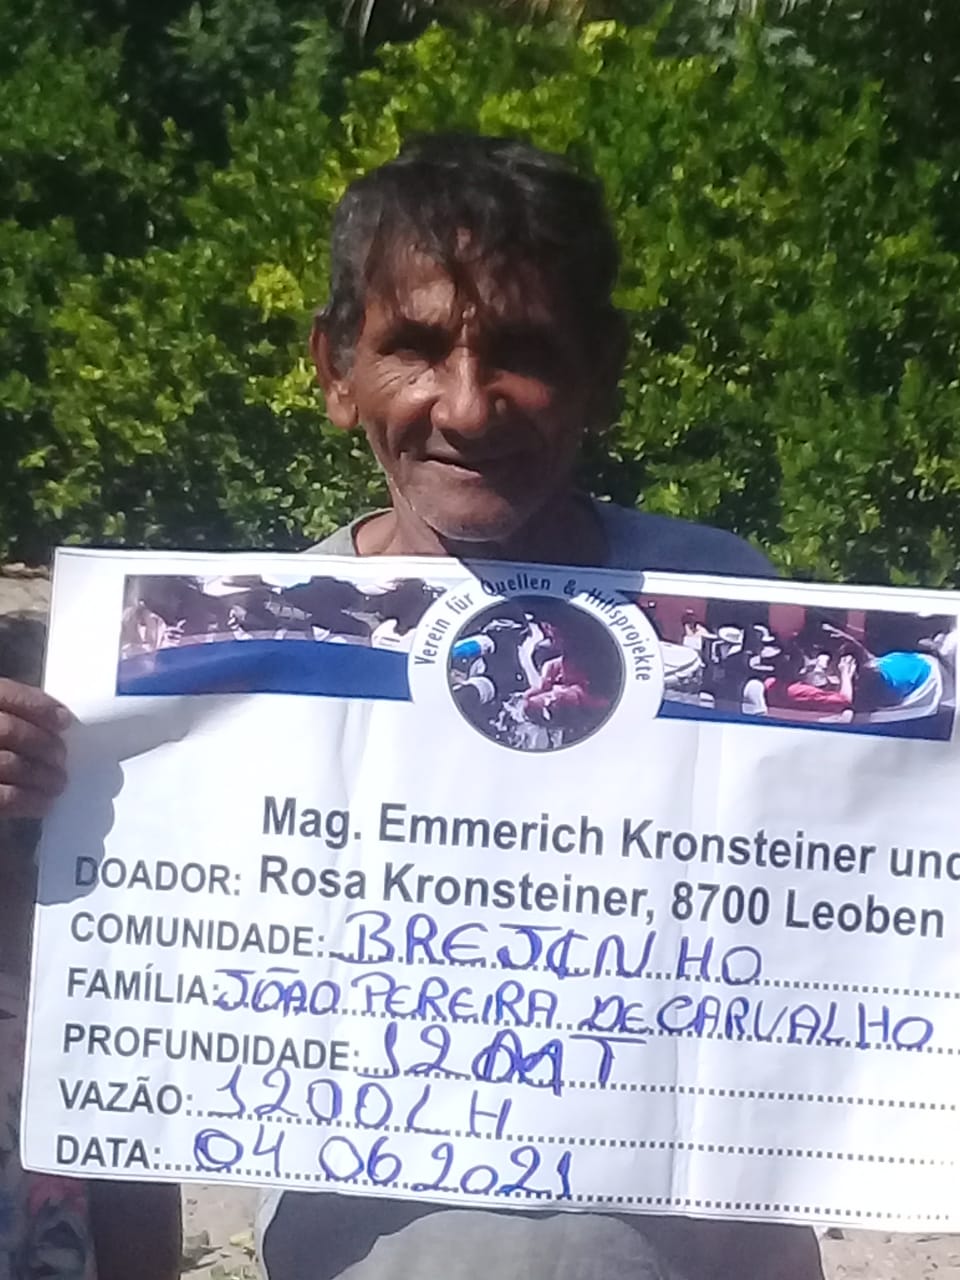 Verein für Quellen & Hilfsprojekte
Mag. Emmerich Kronsteiner und
DOADOR: Rosa Kronsteiner, 8700 Leoben
COMUNIDADE: BREJINHO
FAMÍLIA: JOÃO PEREIRA DE CARVALHO
PROFUNDIDADE:
VAZÃO: 1200 LH
DATA: 04 06 2021